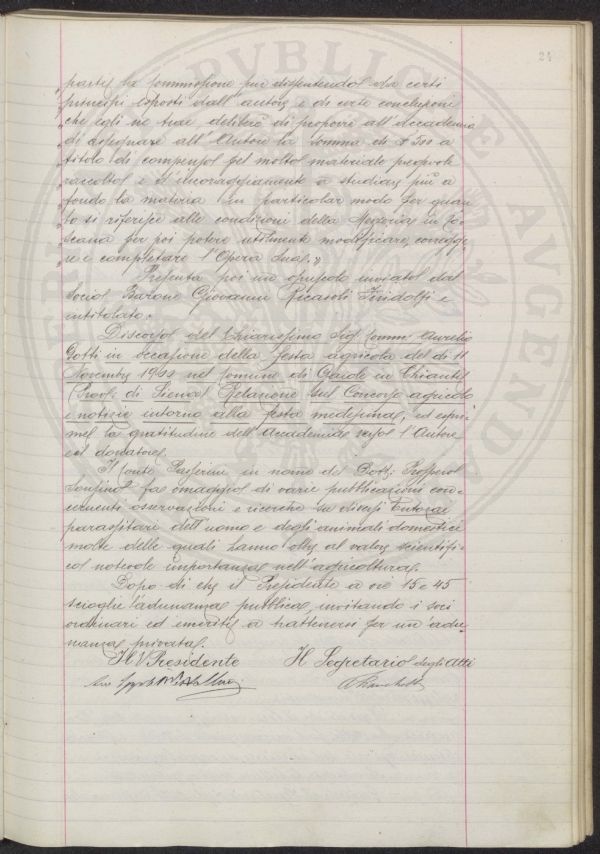 24
„ parte, la Commissione pur dissentendo da certi
„ principi esposti dall'autore e da certe conclusioni
„ che egli ne trae deliberò di proporre all'Accademia
„ di assegnare all'Autore la somma di £ 500 a
„ titolo di compenso pel molto materiale
„ raccolto e d'incoraggiamento a studiare più a
„ fondo la materia in particolar modo per quan
„ to si riferisce alle condizioni della Mezzeria in To=
„ scana per poi potere utilmente modificare, corregge
„ re e completare l'Opera sua. »
Presenta poi un opuscolo inviato dal
Socio Barone Giovanni Ricasoli Firidolfi e
intitolato:
Discorso del Chiarissimo Sig. Comm. Aurelio
Gotti in occasione della festa agricola del dì 11
Novembre 1902 nel Comune di Gaiole in Chianti
(Prov. di Siena) Relazione sul Concorso agricolo
e notizie intorno alla festa medesima, ed espri
me la gratitudine dell'Accademia verso l'Autore
ed donatore.
Il Conte Passerini in nome del Dott. Prospero
Sonsino fa omaggio di varie pubblicazioni con=
cernenti osservazioni e ricerche su diversi Entozoi
parassitari dell'uomo e degli animali domestici
molte delle quali hanno oltre al valore scientifi=
co notevole importanza nell'agricoltura.
Dopo di che il Presidente a ore 15 e 45
scioglie l'adunanza pubblica, invitando i soci
ordinari ed emeriti a trattenersi per un'adu
nanza privata.
Il V Presidente Il Segretario degli Atti